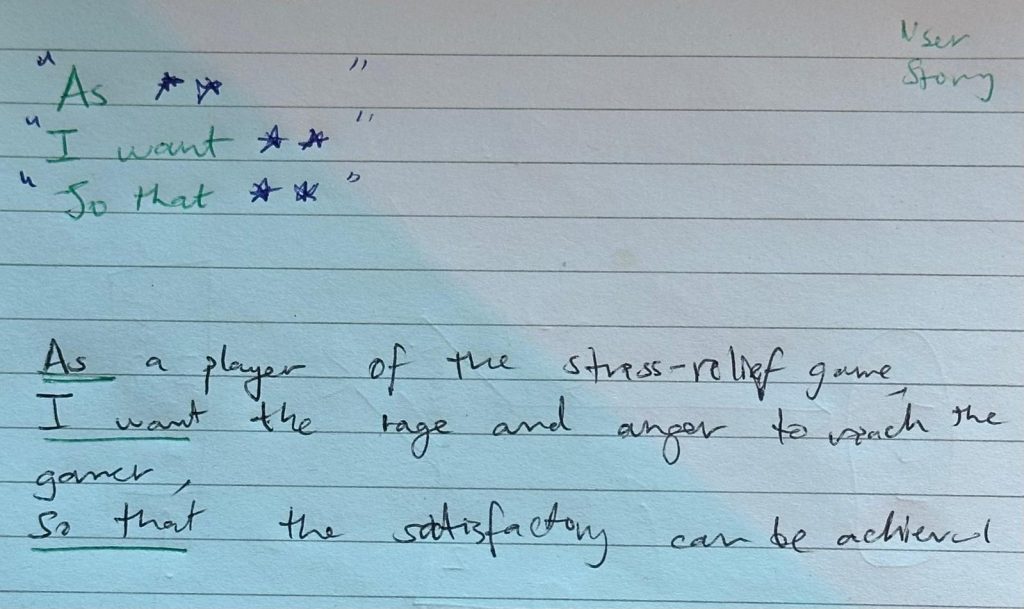 User
Story
"As ** "
"I want ** "
"So that ** "
As a player of the stress-relief game,
I want the rage and anger to reach the
gamer,
So that the satisfactory can be achieved